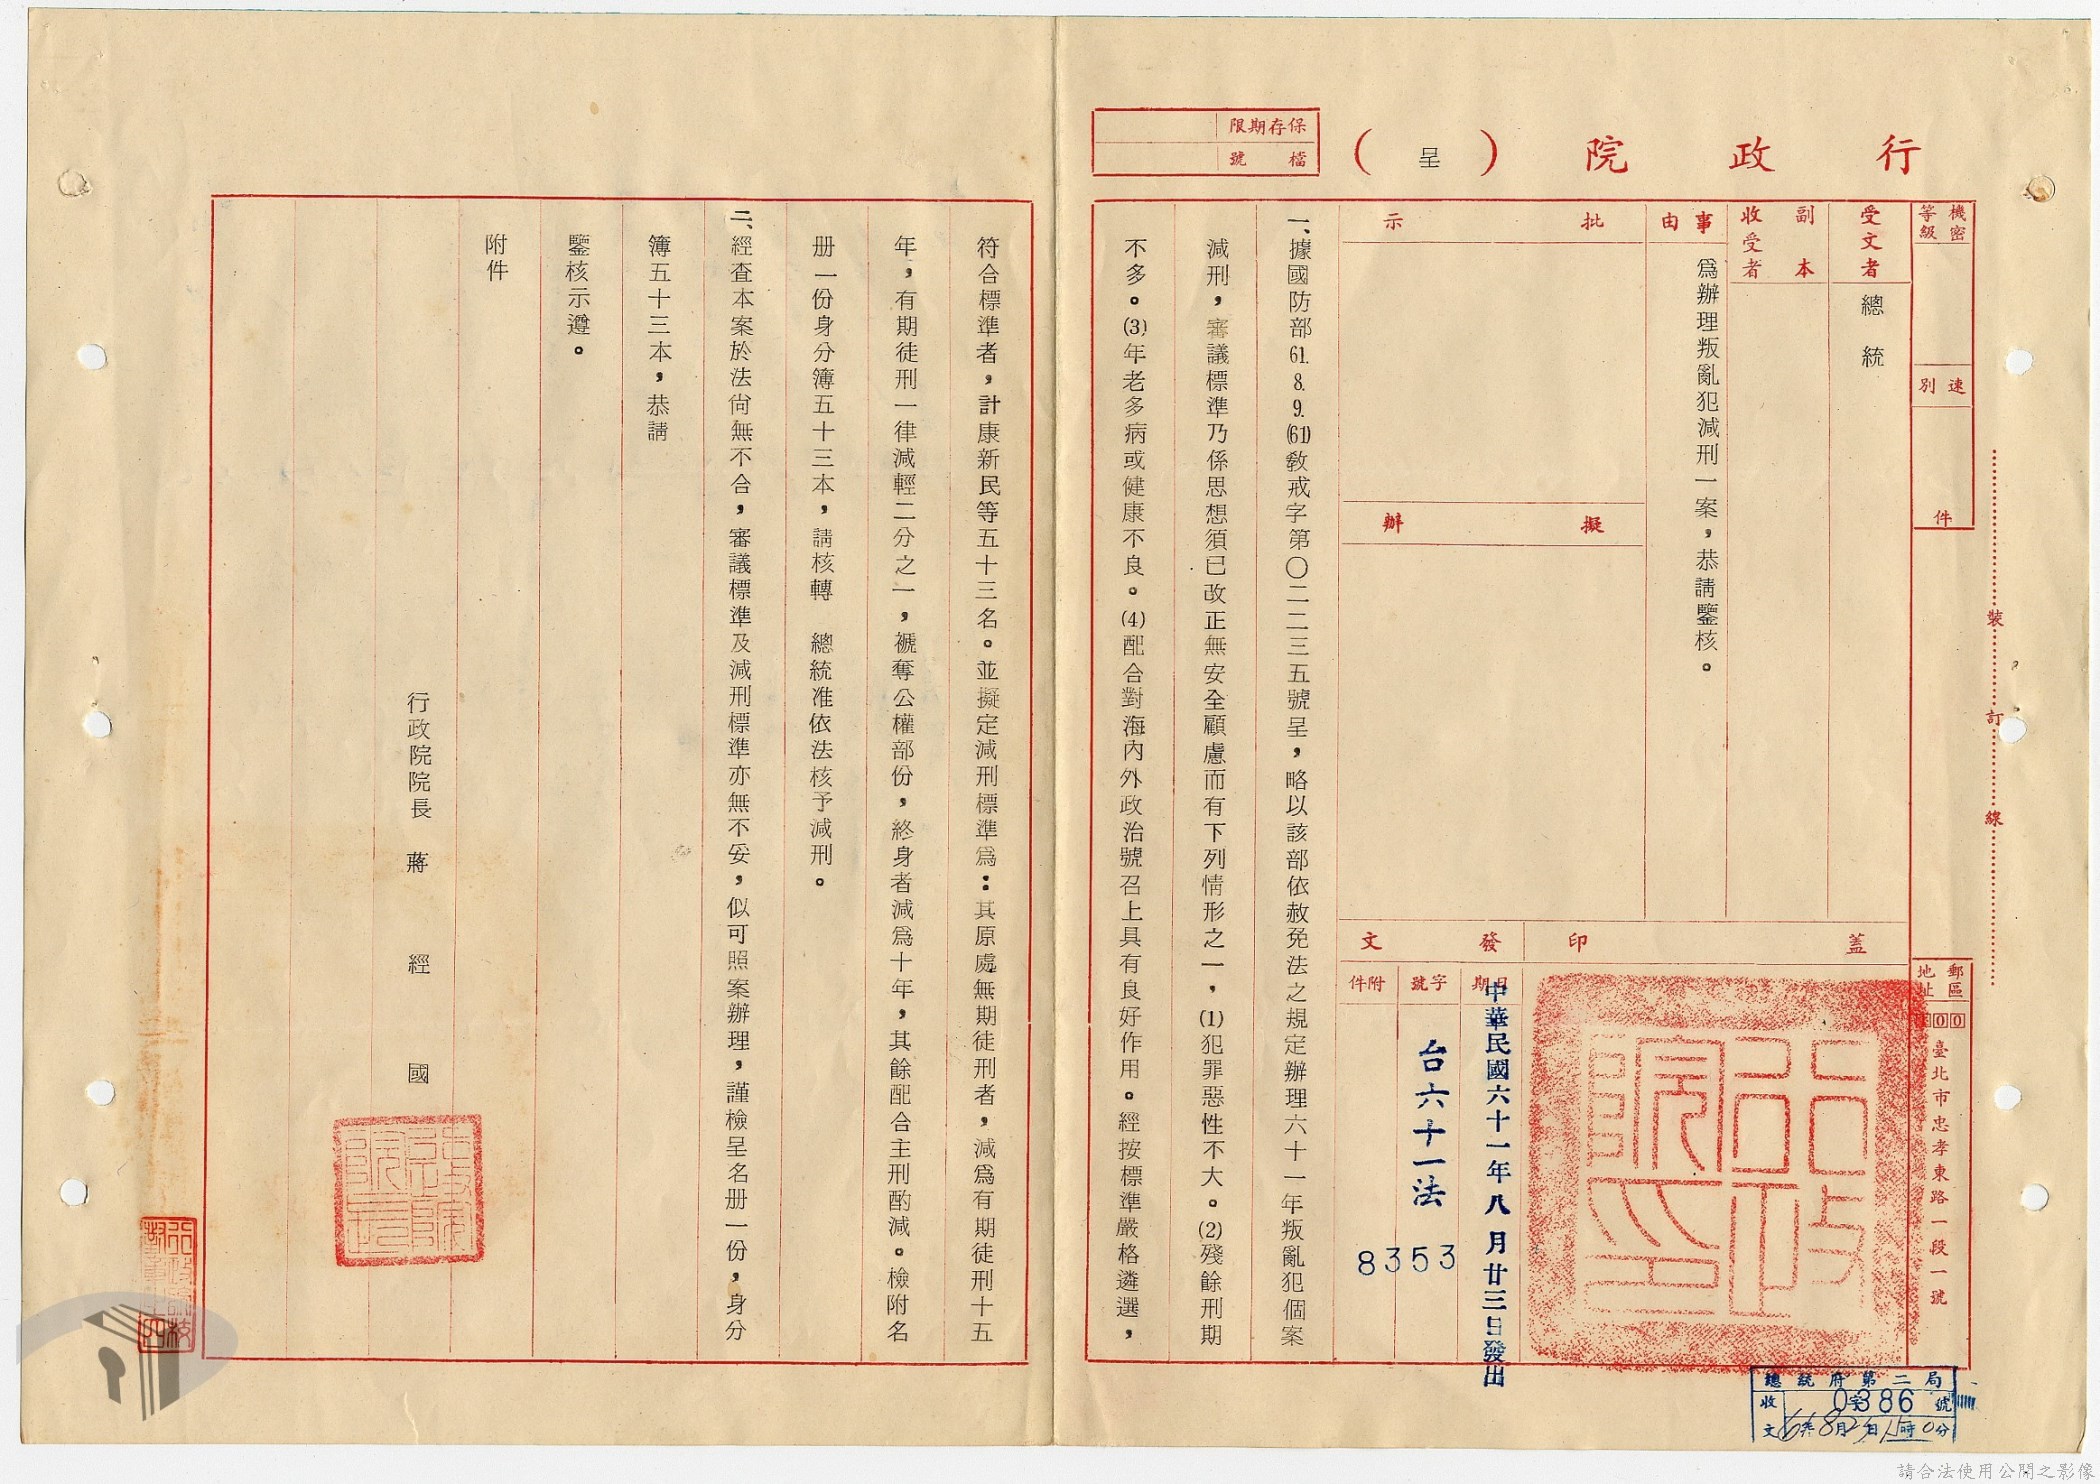 行政院(呈)
保存期限
檔號
機密等級
速別
件
郵區
地址
00
臺北市忠孝東路一段一號
裝
訂
線
受文者
總統
副本
收受者
事由
為辦理叛亂犯減刑一案，恭請鑒核。
批示
擬辦
蓋印
發文
日期
中華民國六十一年八月廿三日發出
字號
台六十一法
8353
附件
一、據國防部61.8.9.(61)教戒字第〇二二三五號呈，略以該部依赦免法之規定辦理六十一年叛亂犯個案
減刑，審議標準乃係思想須已改正無安全顧慮而有下列情形之一，(1)犯罪惡性不大。(2)殘餘刑期
不多。(3)年老多病或健康不良。(4)配合對海內外政治號召上具有良好作用。經按標準嚴格遴選，
符合標準者，計康新民等五十三名。並擬定減刑標準為：其原處無期徒刑者，減為有期徒刑十五
年，有期徒刑一律減輕二分之一，褫奪公權部份，終身者減為十年，其餘配合主刑酌減。檢附名
册一份身分簿五十三本，請核轉　總統准依法核予減刑。
二、經查本案於法尚無不合，審議標準及減刑標準亦無不妥，似可照案辦理，謹檢呈名册一份，身分
簿五十三本，恭請
鑒核示遵。
附件
行政院院長　蔣　經　國
行政院印
總統府第二局
收文
字386號
年8月日時0分
請合法使用公開之影像